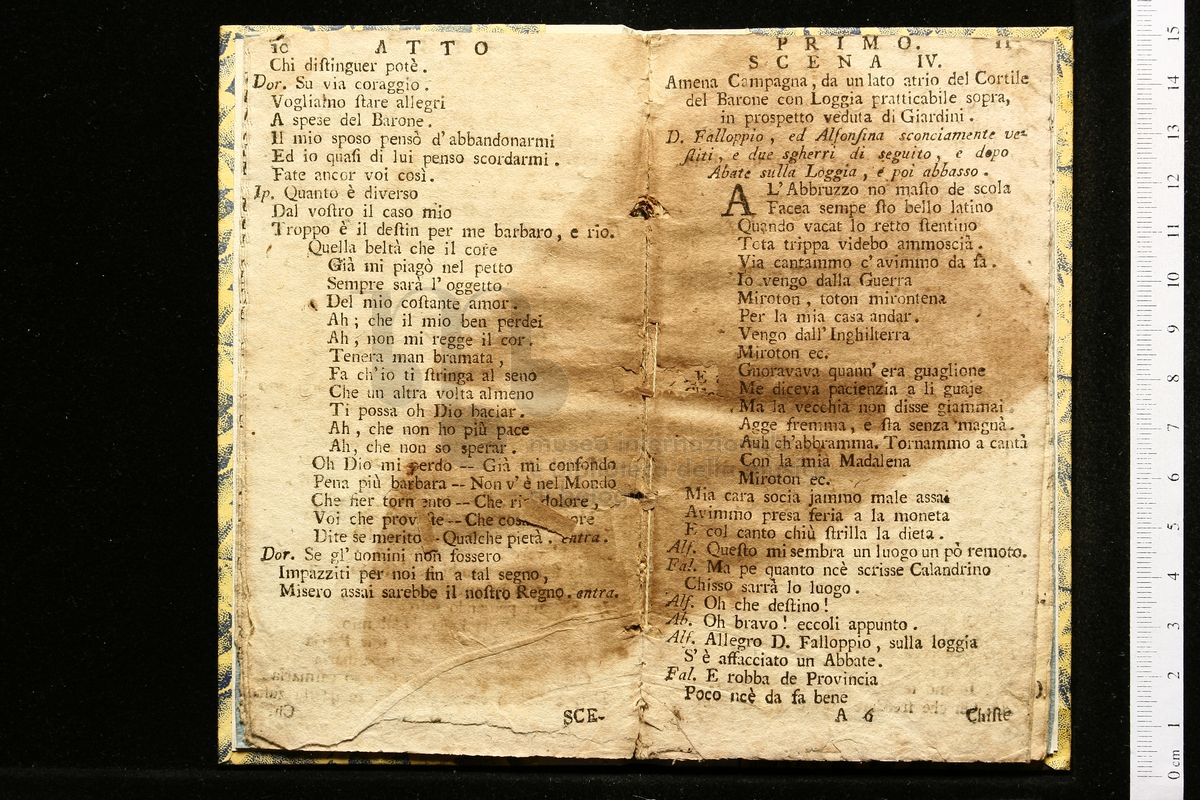 10 ATTO
Chi diſtinguer potè.
Dor. Su via coraggio.
Vogliamo ſtare allegri
A spese del Barone.
Il mio sposo pensò d'abbandonarmi
Ed io quaſi di lui penso scordarmi.
Fate ancor voi così.
Ip. Quanto è diverso
Dal voſtro il caso mio
Troppo è il deſtin per me barbaro, e rio.
Quella beltà che il core
Già mi piagò nel petto
Sempre sarà l'oggetto
Del mio coſtante amor.
Ah; che il mio ben perdei
Ah, non mi regge il cor.
Tenera man bramata,
Fa ch'io ti ſtringa al seno
Che un altra volta almeno
Ti possa oh Dio baciar.
Ah, che non ho più pace
Ah, che non so sperar.
Oh Dio mi perdo -- Già mi confondo
Pena più barbara -- Non v'è nel Mondo
Che fier tormento -- Che rio dolore,
Voi che provaſte -- Che
Dite se merito - Qualche pietà. entra.
Dor. Se gl'uomini non fossero
Impazziti per noi fin a tal segno,
Misero assai sarebbe il noſtro Regno. entra.
SCE-
PRIMO. 11
SCENA IV.
Amena Campagna, da un lato atrio del Cortile
del Barone con Loggia pratticabile sopra,
in prospetto veduta di Giardini.
D. Falloppio, ed Alfonſina sconciamente ve-
ſtiti, e due sgherri di seguito, e dopo
Abate sulla Loggia, e poi abbasso.
AL'Abbruzzo no maſto de scola
Facea sempe ſto bello latino
Quando vacat lo retto ſtentino
Tota trippa videbo ammoscià.
Via cantammo c'avimmo da fa.
Io vengo dalla Guerra
Miroton, toton mirontena
Per la mia casa andar.
Vengo dall'Inghilterra
Miroton ec.
Gnoravava quann'era guaglione
Me diceva pacienzia a li guaje
Ma la vecchia non disse giammai
Agge fremma, e ſta senza magnà.
Auh ch'abbramma. Tornammo a cantà
Con la mia Madalena
Miroton ec.
Mia cara socia jammo male assai
Avimmo presa feria a la moneta
E col canto chiù ſtrilla la dieta.
Alf. Queſto mi sembra un luogo un pò remoto.
Fal. Ma pe quanto ncè scrisse Calandrino
Chisso sarrà lo luogo.
Alf. Oh che deſtino!
Ab. Oh bravo! eccoli appunto.
Alf. Allegro D. Falloppio, sulla loggia
S'è affacciato un Abbate.
Fal. E robba de Provincia
Poco ncè da fa bene
A 6 Chiſte